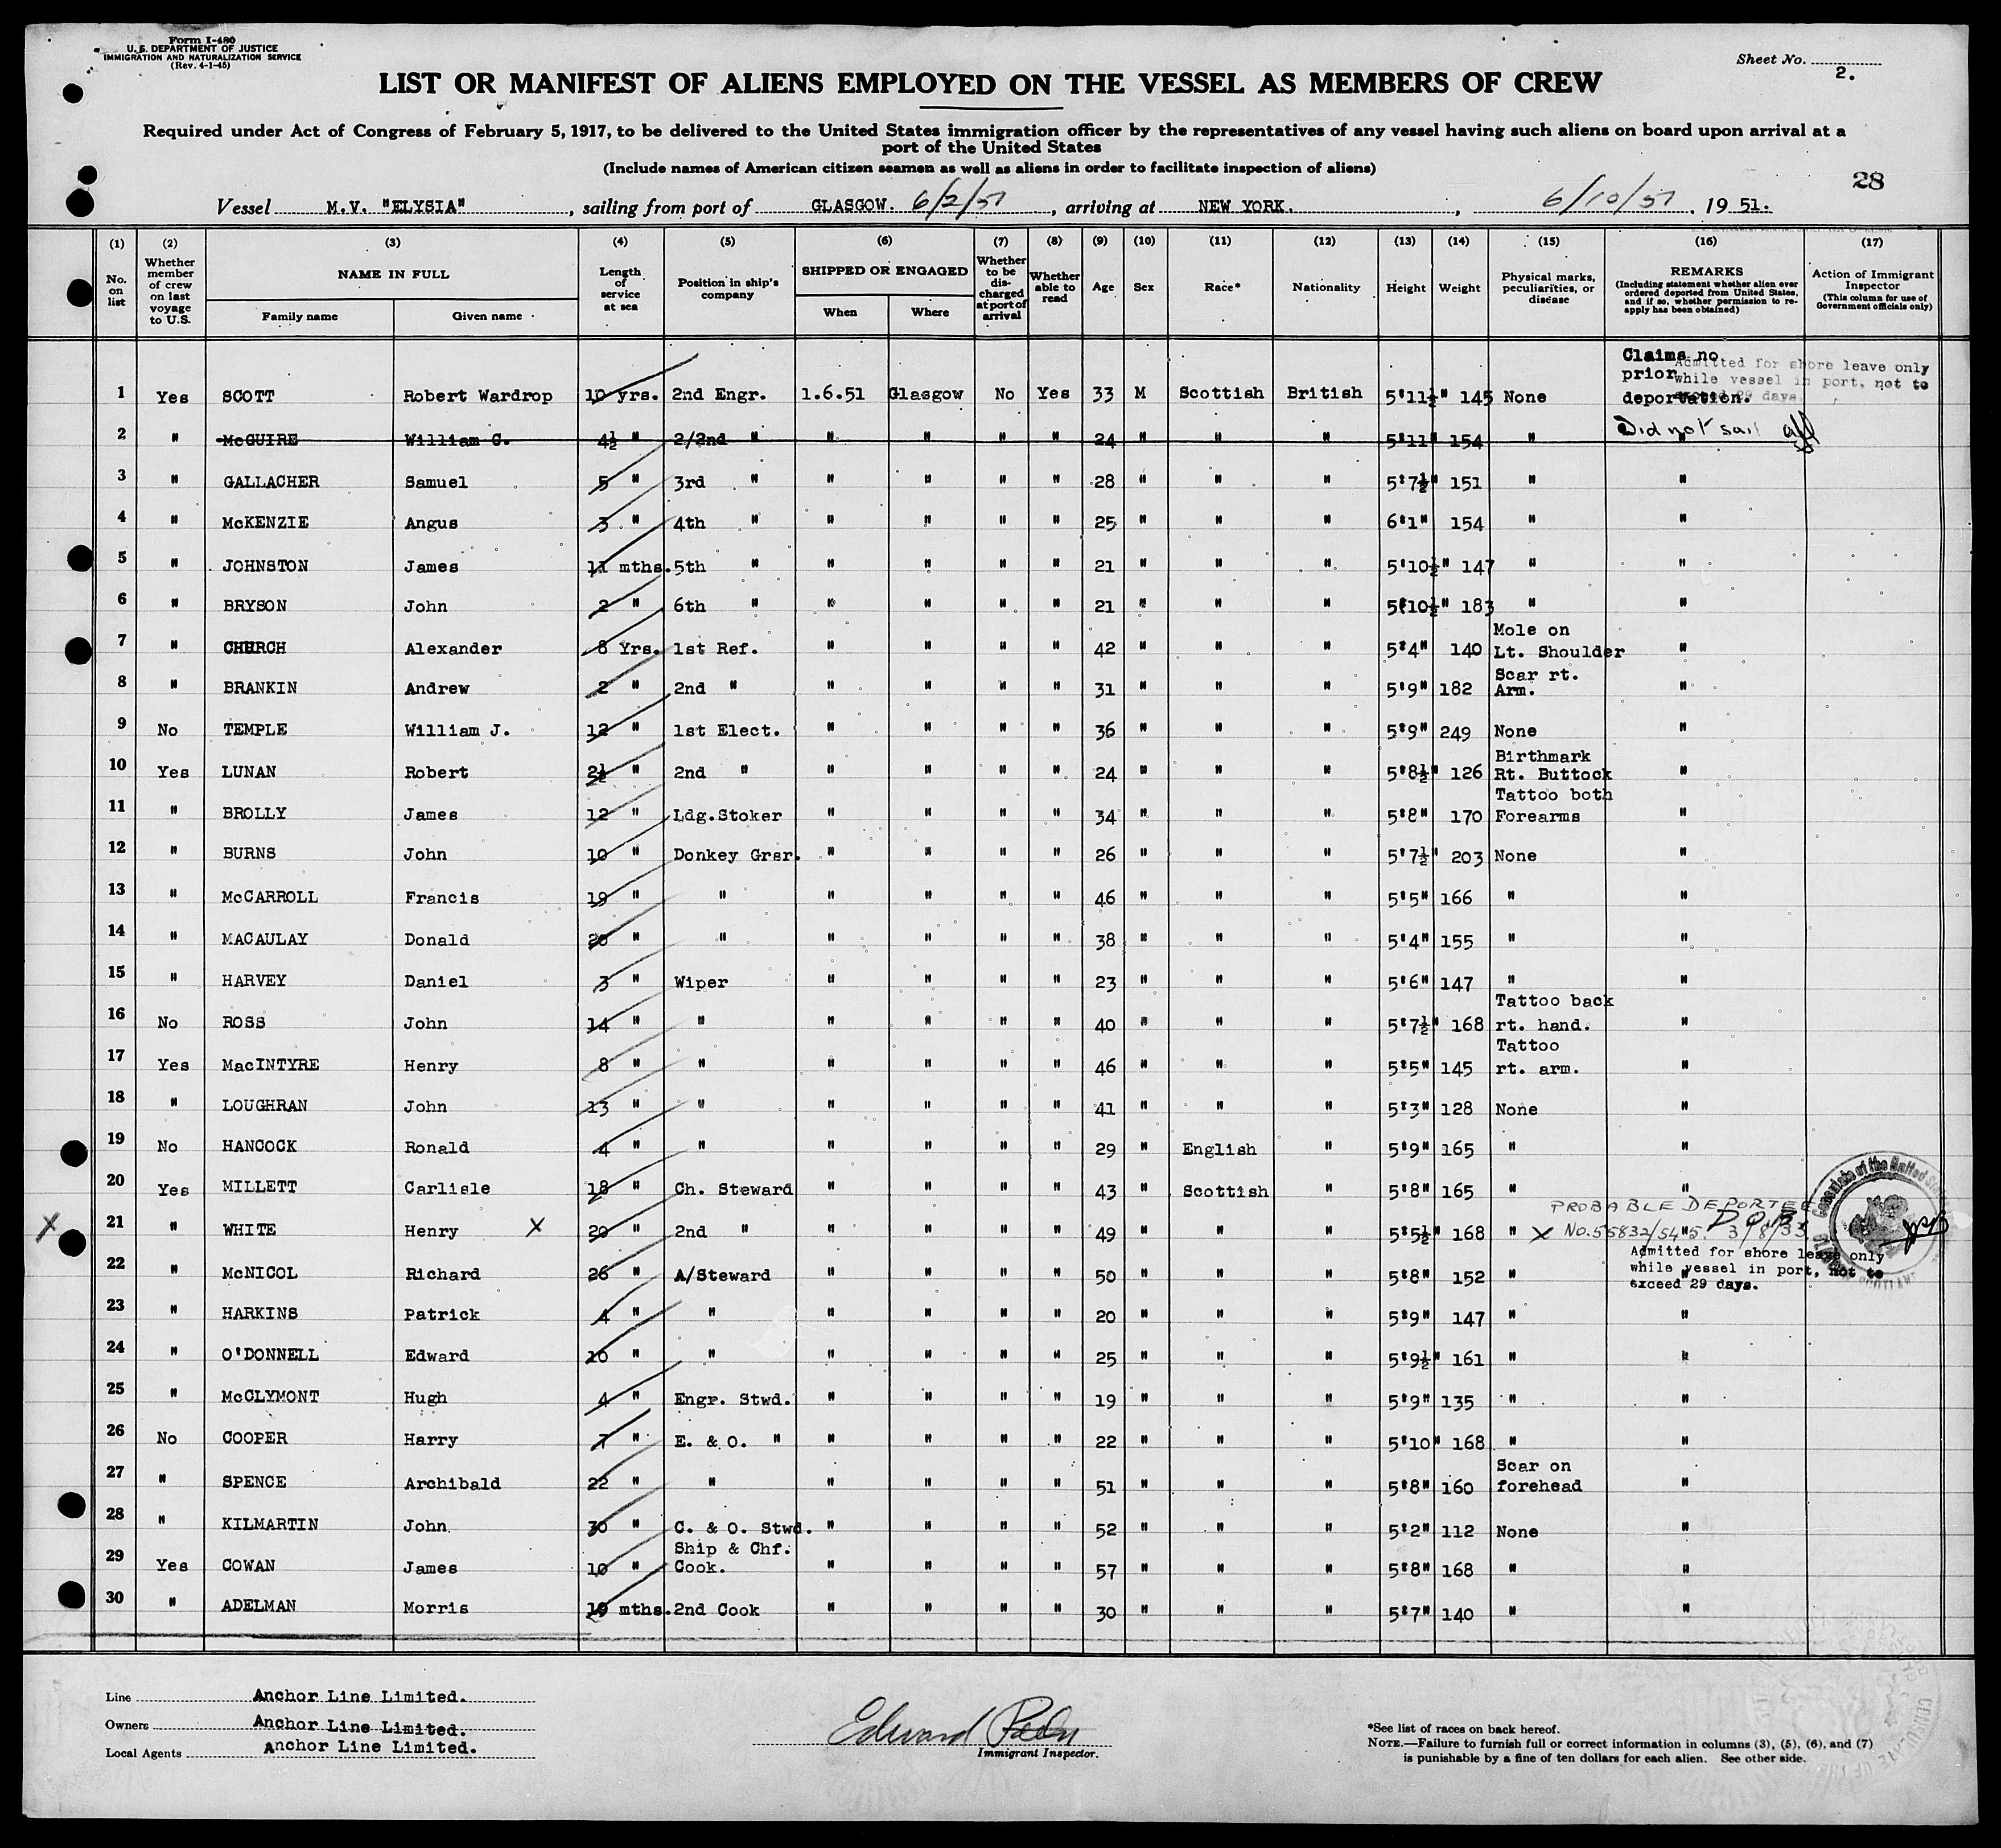 Form I-480
U. S. DEPARTMENT OF JUSTICE
IMMIGRATION AND NATURALIZATION SERVICE
(Rev. 4-1-45)
Sheet No. 2.
LIST OR MANIFEST OF ALIENS EMPLOYED ON THE VESSEL AS MEMBERS OF CREW
Required under Act of Congress of February 5, 1917, to be delivered to the United States immigration officer by the representatives of any vessel having such aliens on board upon arrival at a
port of the United States
(Include names of American citizen seamen as well as aliens in order to facilitate inspection of aliens)
28
Vessel M.V. "ELYSIA", sailing from port of GLASGOW. 6/2/51, arriving at NEW YORK., 6/10/51, 1951.
(1) (2) (3) (4) (5) (6) (7) (8) (9) (10) (11) (12) (13) (14) (15) (16) (17)
No. on list
Whether member of crew on last voyage to U.S.
NAME IN FULL
Family name
Given name
Length of service at sea
Position in ship's company
SHIPPED OR ENGAGED
When
Where
Whether to be discharged at port of arrival
Whether able to read
Age
Sex
Race*
Nationality
Height
Weight
Physical marks, peculiarities, or disease
REMARKS
(Including statement whether alien ever ordered deported from United States, and if so, whether permission to reapply has been obtained)
Action of Immigrant Inspector
(This column for use of Government officials only)
1 Yes SCOTT Robert Wardrop 10 yrs. 2nd Engr. 1.6.51 Glasgow No Yes 33 M Scottish British 5'11½" 145 None Claims no prior deportation.
Admitted for shore leave only
while vessel in port, not to
exceed 29 days.
2 " McGUIRE William C. 4½ " 2/2nd " " " " " 24 " " " 5'11" 154 " " Did not sail
3 " GALLACHER Samuel 5 " 3rd " " " " " 28 " " " 5'7½" 151 " "
4 " McKENZIE Angus 3 " 4th " " " " " 25 " " " 6'1" 154 " "
5 " JOHNSTON James 11 mths. 5th " " " " " 21 " " " 5'10½" 147 " "
6 " BRYSON John 2 " 6th " " " " " 21 " " " 5'10½" 183 " "
7 " CHURCH Alexander 8 Yrs. 1st Ref. " " " " 42 " " " 5'4" 140 Mole on Lt. Shoulder "
8 " BRANKIN Andrew 2 " 2nd " " " " " 31 " " " 5'9" 182 Scar rt. Arm. "
9 No TEMPLE William J. 12 " 1st Elect. " " " " 36 " " " 5'9" 249 None "
10 Yes LUNAN Robert 2½ " 2nd " " " " " 24 " " " 5'8½" 126 Birthmark Rt. Buttock "
11 " BROLLY James 12 " Ldg.Stoker " " " " 34 " " " 5'8" 170 Tattoo both Forearms "
12 " BURNS John 10 " Donkey Grsr. " " " " 26 " " " 5'7½" 203 None "
13 " McCARROLL Francis 19 " " " " " " 46 " " " 5'5" 166 " "
14 " MACAULAY Donald 20 " " " " " " 38 " " " 5'4" 155 " "
15 " HARVEY Daniel 3 " Wiper " " " " 23 " " " 5'6" 147 " "
16 No ROSS John 14 " " " " " " 40 " " " 5'7½" 168 Tattoo back rt. hand. "
17 Yes MacINTYRE Henry 8 " " " " " " 46 " " " 5'5" 145 Tattoo rt. arm. "
18 " LOUGHRAN John 13 " " " " " " 41 " " " 5'3" 128 None "
19 No HANCOCK Ronald 4 " " " " " " 29 " English " 5'9" 165 " "
20 Yes MILLETT Carlisle 18 " Ch. Steward " " " " 43 " Scottish " 5'8" 165 " "
PROBABLE DEPORTEE
X 21 " WHITE Henry X 20 " 2nd " " " " " 49 " " " 5'5½" 168 " X No. 55832/545. " 3/8/33
Admitted for shore leave only
while vessel in port, not to
exceed 29 days.
22 " McNICOL Richard 26 " A/Steward " " " " 50 " " " 5'8" 152 " "
23 " HARKINS Patrick 4 " " " " " " 20 " " " 5'9" 147 " "
24 " O'DONNELL Edward 10 " " " " " " 25 " " " 5'9½" 161 " "
25 " McCLYMONT Hugh 4 " Engr. Stwd. " " " " 19 " " " 5'9" 135 " "
26 No COOPER Harry 7 " E. & O. " " " " " 22 " " " 5'10" 168 " "
27 " SPENCE Archibald 22 " " " " " " 51 " " " 5'8" 160 Scar on forehead "
28 " KILMARTIN John 30 " C. & O. Stwd. " " " " 52 " " " 5'2" 112 None "
29 Yes COWAN James 10 " Ship & Chf. Cook. " " " " 57 " " " 5'8" 168 " "
30 " ADELMAN Morris 10 mths. 2nd Cook " " " " 30 " " " 5'7" 140 " "
Line Anchor Line Limited.
Owners Anchor Line Limited.
Local Agents Anchor Line Limited.
Edward
Immigrant Inspector.
*See list of races on back hereof.
NOTE.—Failure to furnish full or correct information in columns (3), (5), (6), and (7)
is punishable by a fine of ten dollars for each alien. See other side.